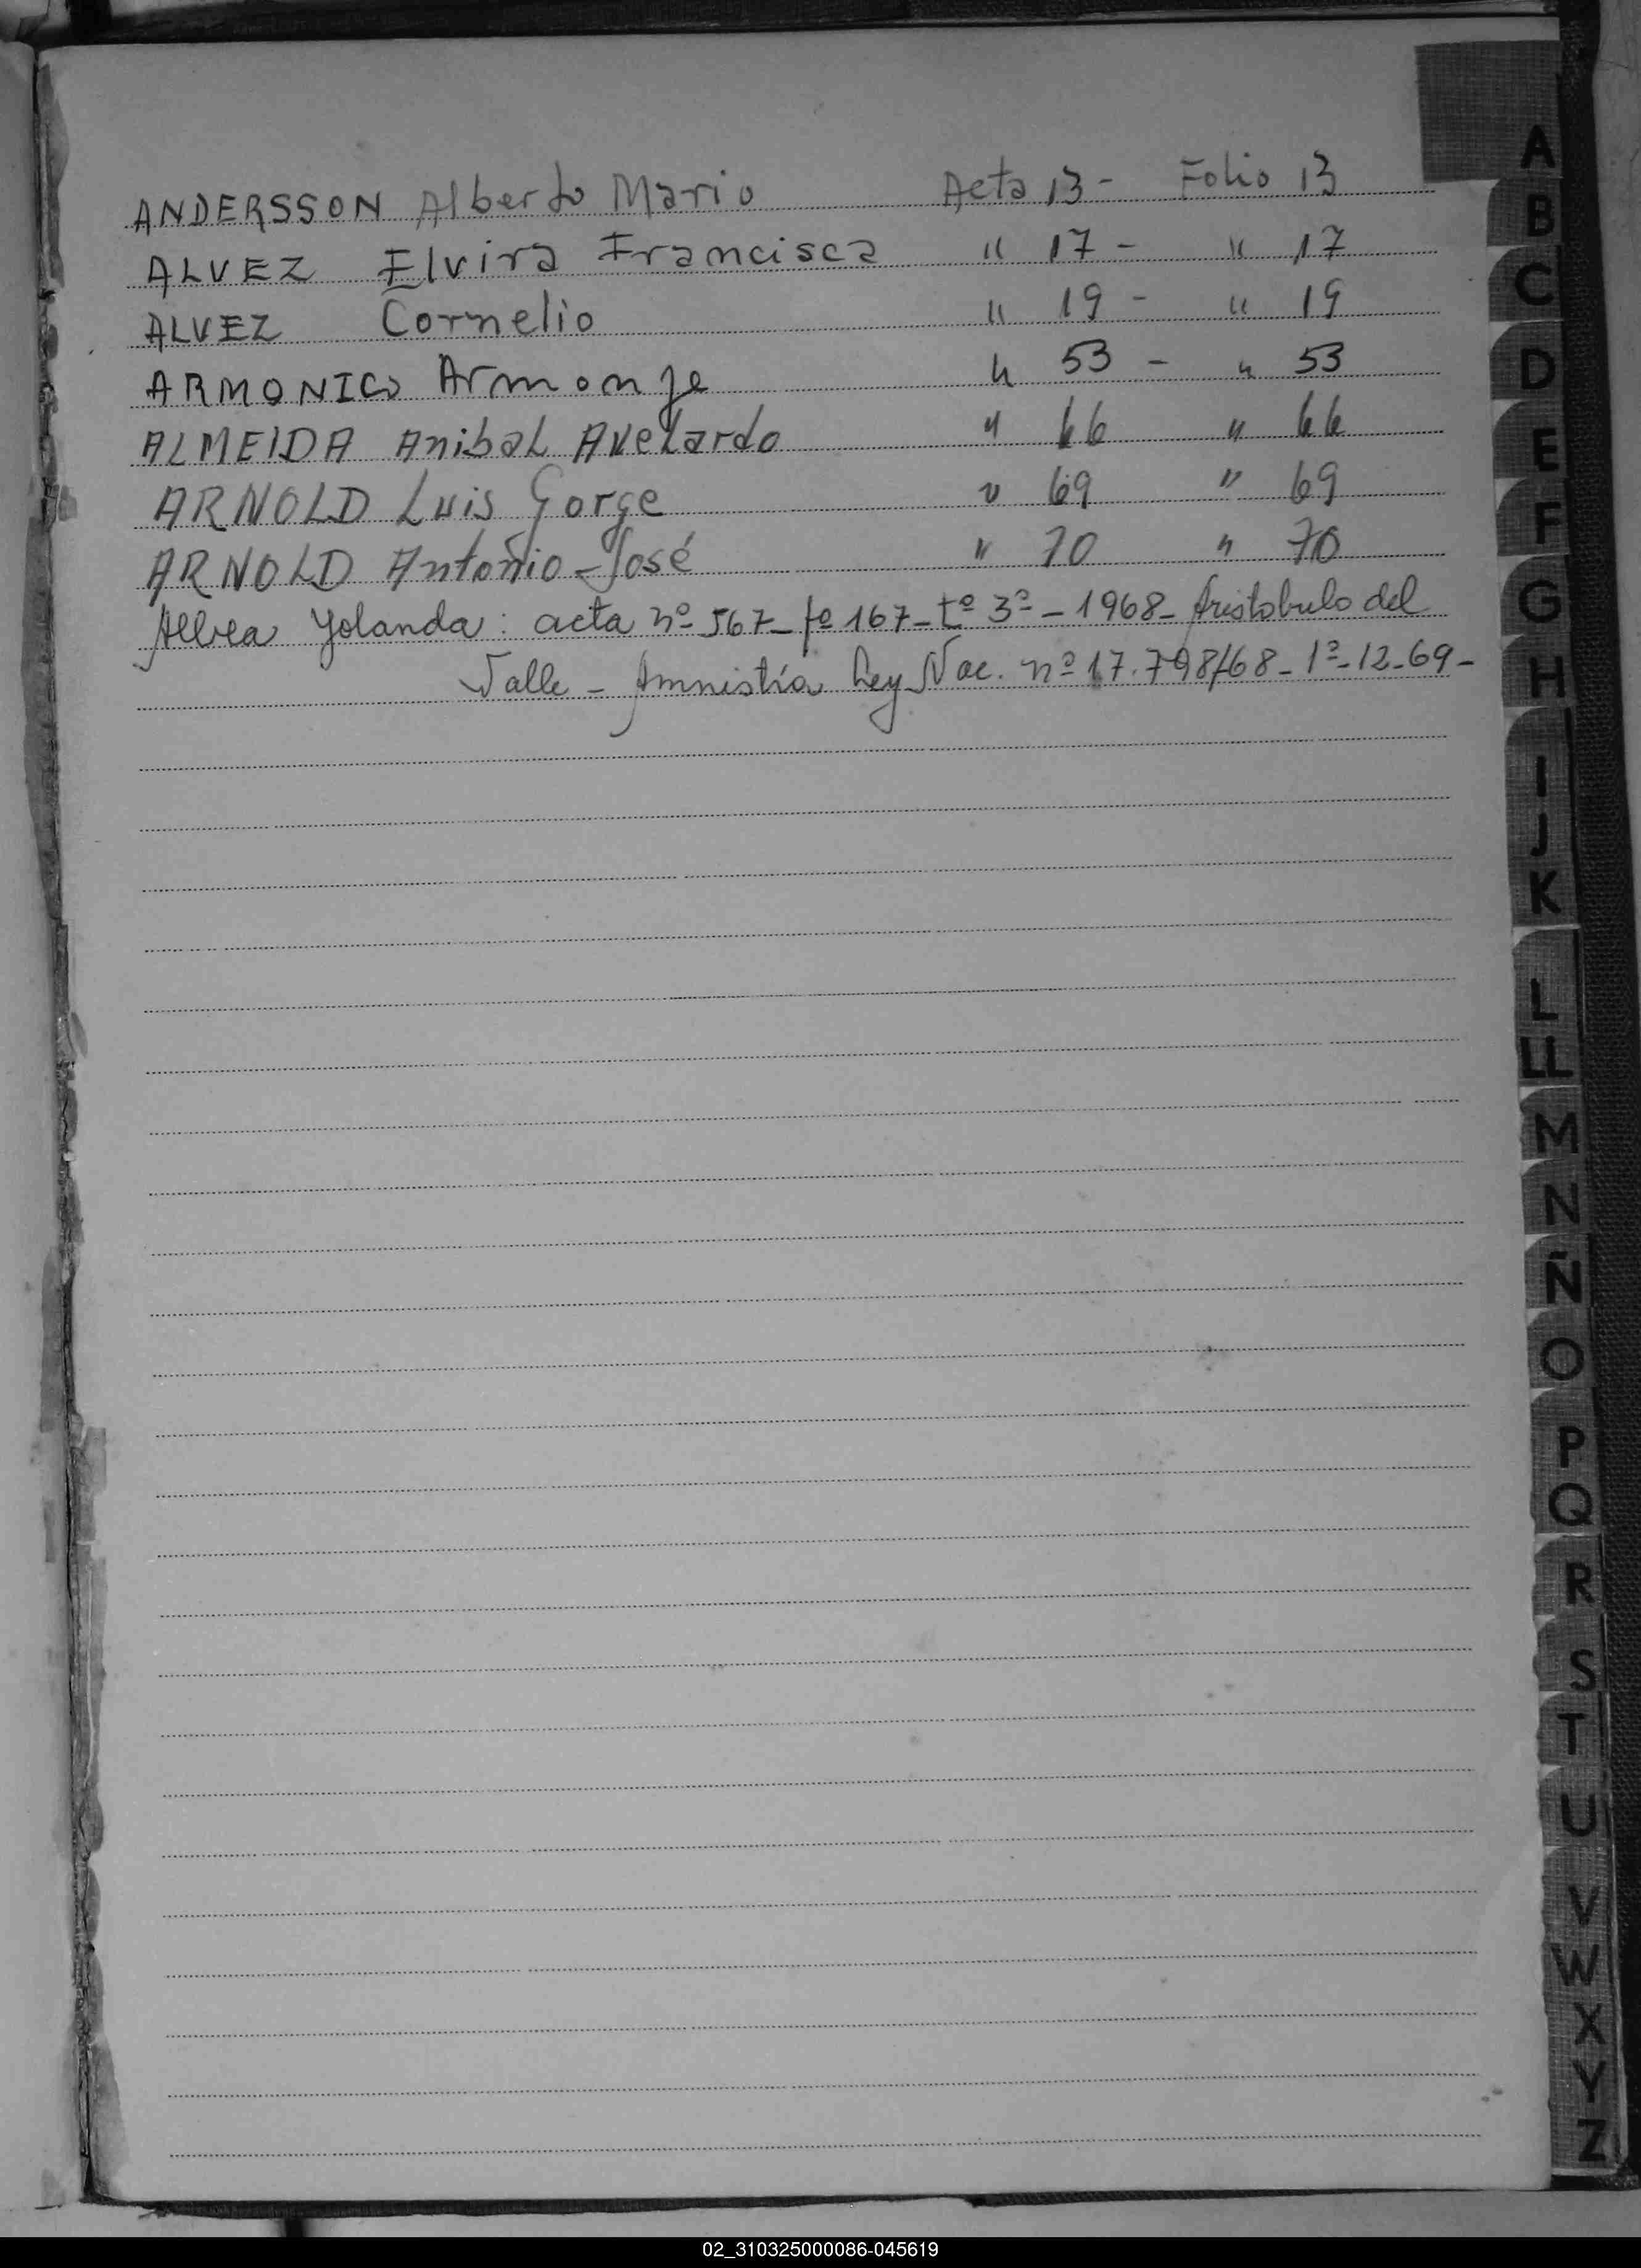 ANDERSSON Alberto Mario Acta 13 - Folio 13
ALVEZ Elvira Francisca " 17 - " 17
ALVEZ Cornelio " 19 - " 19
ARMONICO Armonge " 53 - " 53
ALMEIDA Anibal Avelardo " 66 " 66
ARNOLD Luis Gorge " 69 " 69
ARNOLD Antonio José " 70 " 70
Yolanda: acta nº 567 - fº 167 - tº 3º - 1968 - Aristobulo del
Valle - Amnistía Ley Nac. nº 17.798/68 - 1º-12-69 -
A
B
C
D
E
F
G
H
I
J
K
L
LL
M
N
Ñ
O
P
Q
R
S
T
U
V
W
X
Y
Z
02_310325000086-045619